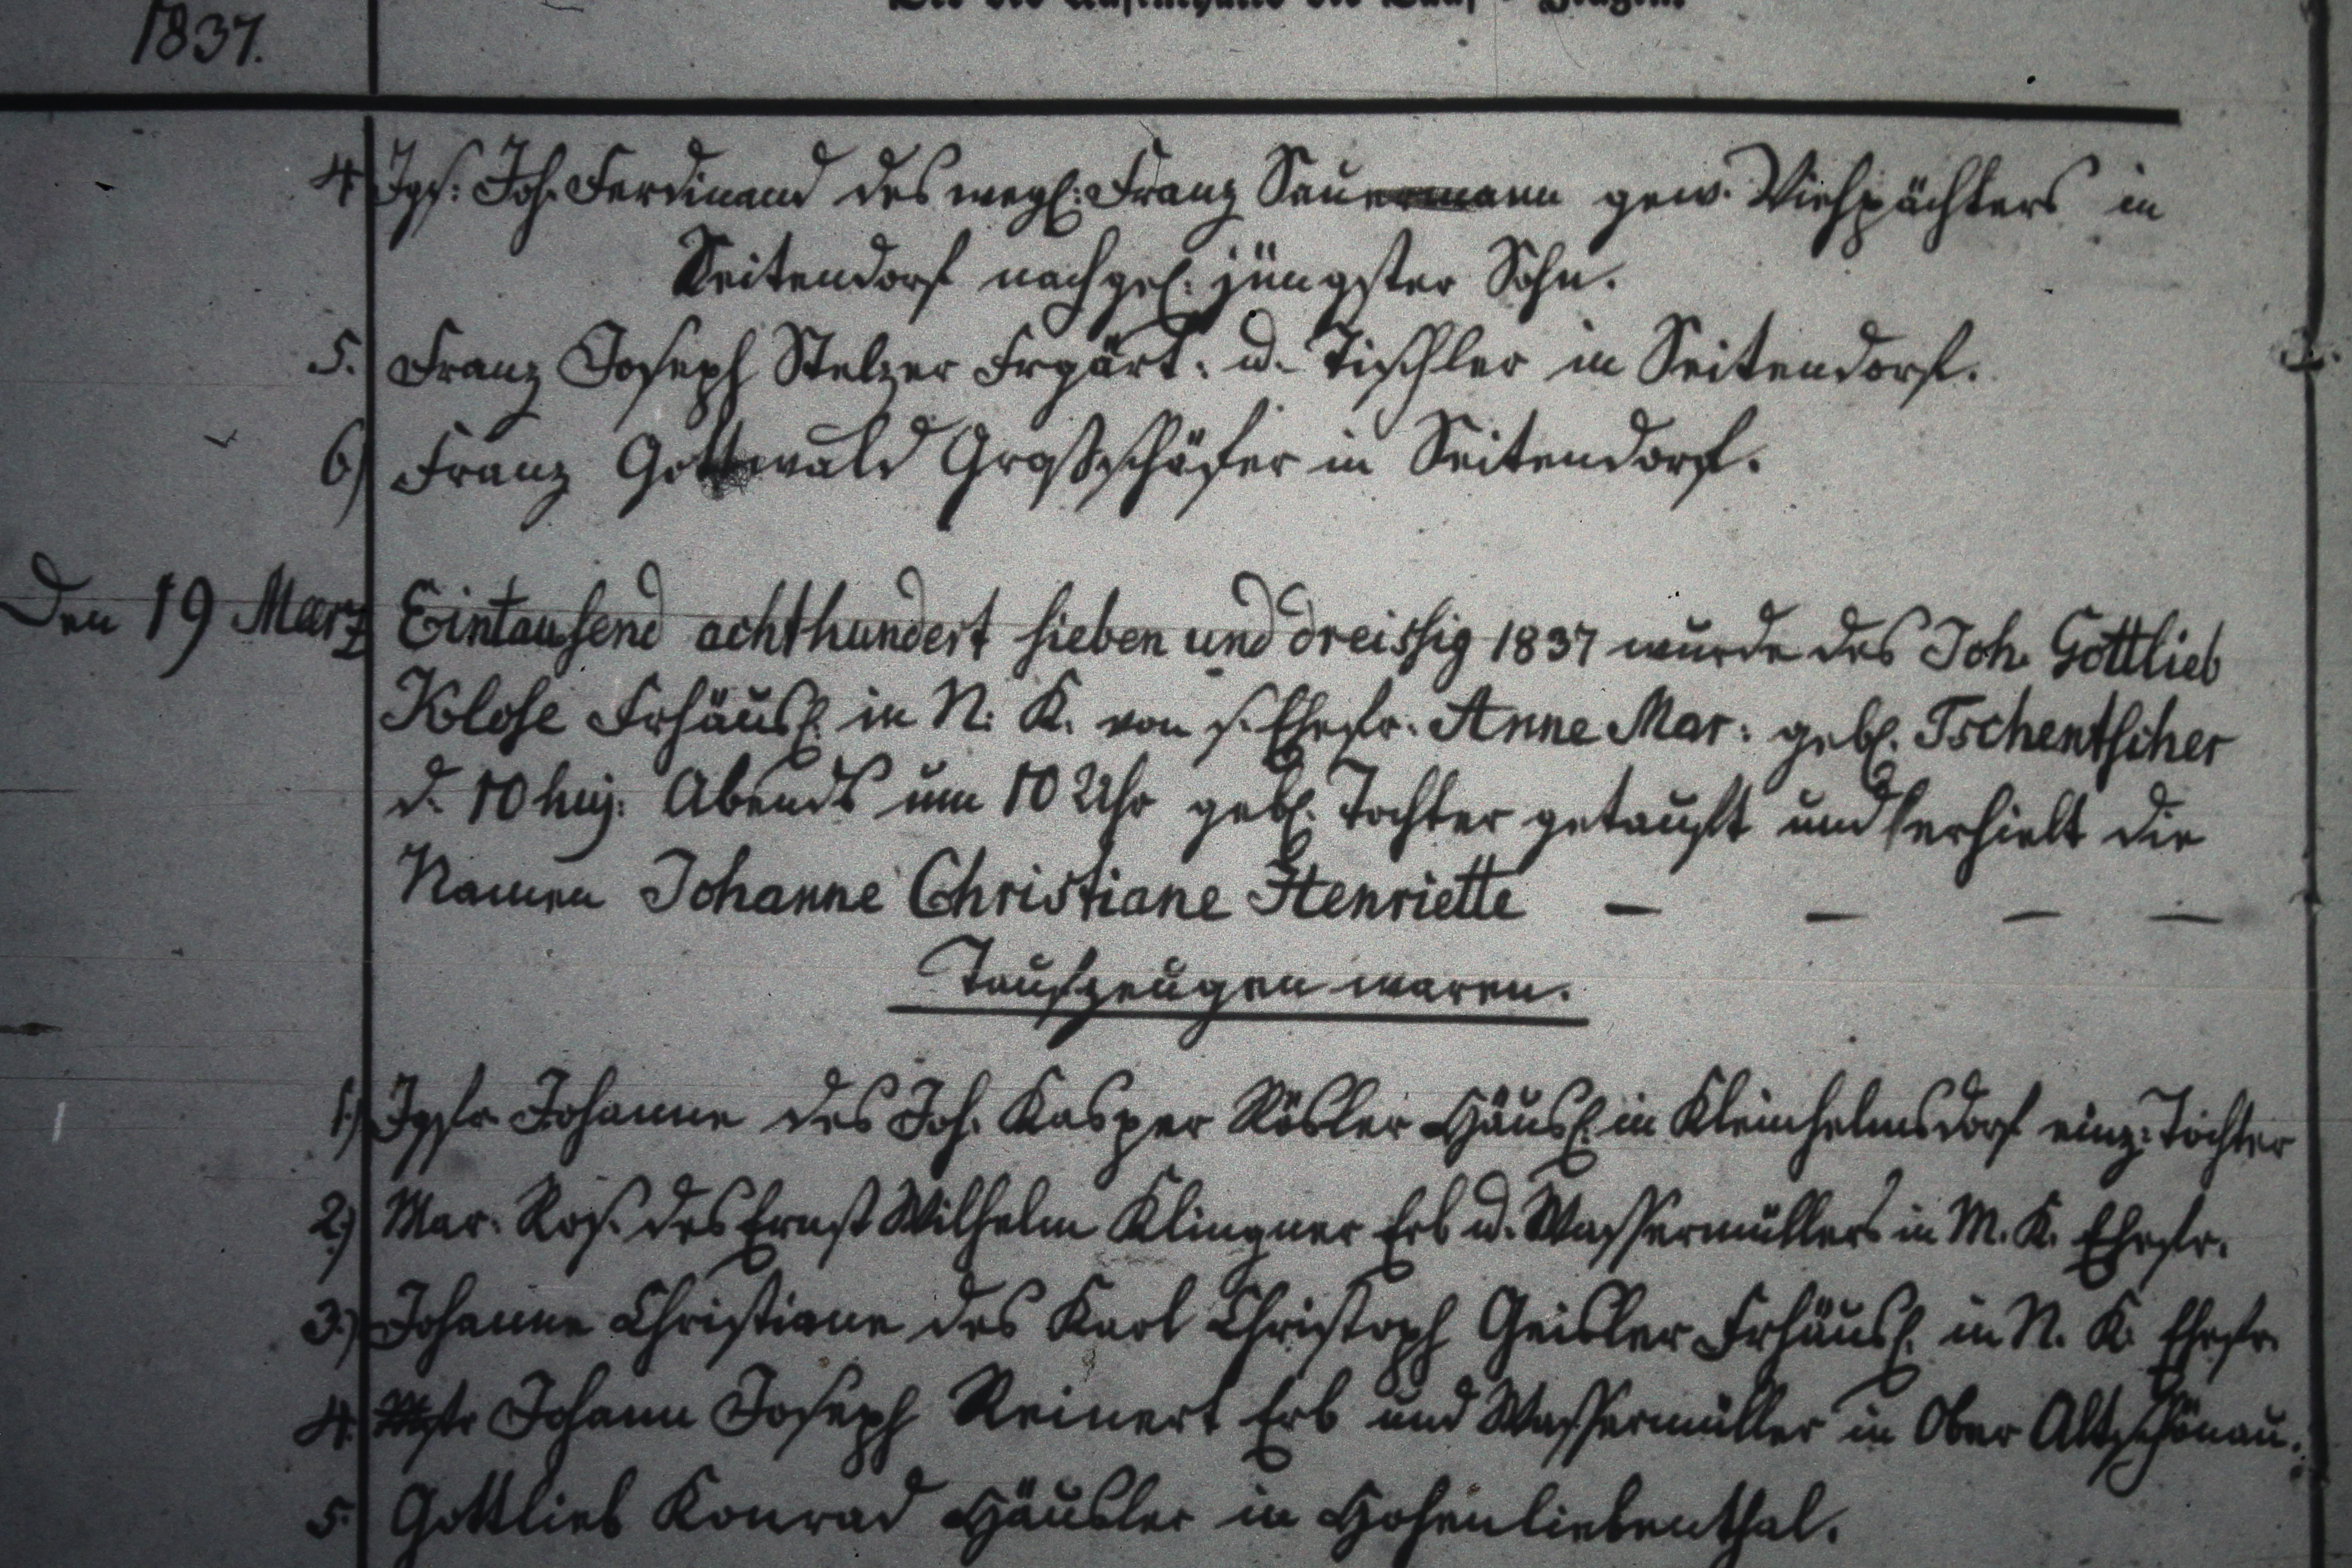 1837.
4 Jgs: Joh. Ferdinand des wegl: Franz Sauermann gew. Viehpächters in
Seitendorf nachgel: jüngster Sohn.
5. Franz Joseph Stelzer Frgärt: u. Tischler in Seitendorf.
6) Franz Gottwald Großschäfer in Seitendorf.
Den 19 März Eintausend achthundert sieben und dreissig 1837 wurde des Joh. Gottlieb
Klose Frhäusl. in N. K. von s. Ehefr. Anne Mar: gebl. Tschentscher
d. 10 huj. Abends um 10 Uhr gebl. Tochter getauft und erhielt die
Namen Johanne Christiane Henriette — — — —
Taufzeugen waren.
1.) Jgfr. Johanne des Joh. Kasper Rösler Häusl. in Kleinhelmsdorf einz: Tochter
2.) Mar. Ros. des Ernst Wilhelm Klingner Erb u. Wassermüllers in M. K. Ehefr.
3.) Johanne Christiane des Karl Christoph Geisler Frhäusl. in N. K. Ehefr.
4. Johann Joseph Reinert Erb und Wassermüller in Ober Altschönau.
5. Gottlieb Konrad Häusler in Hohenliebenthal.